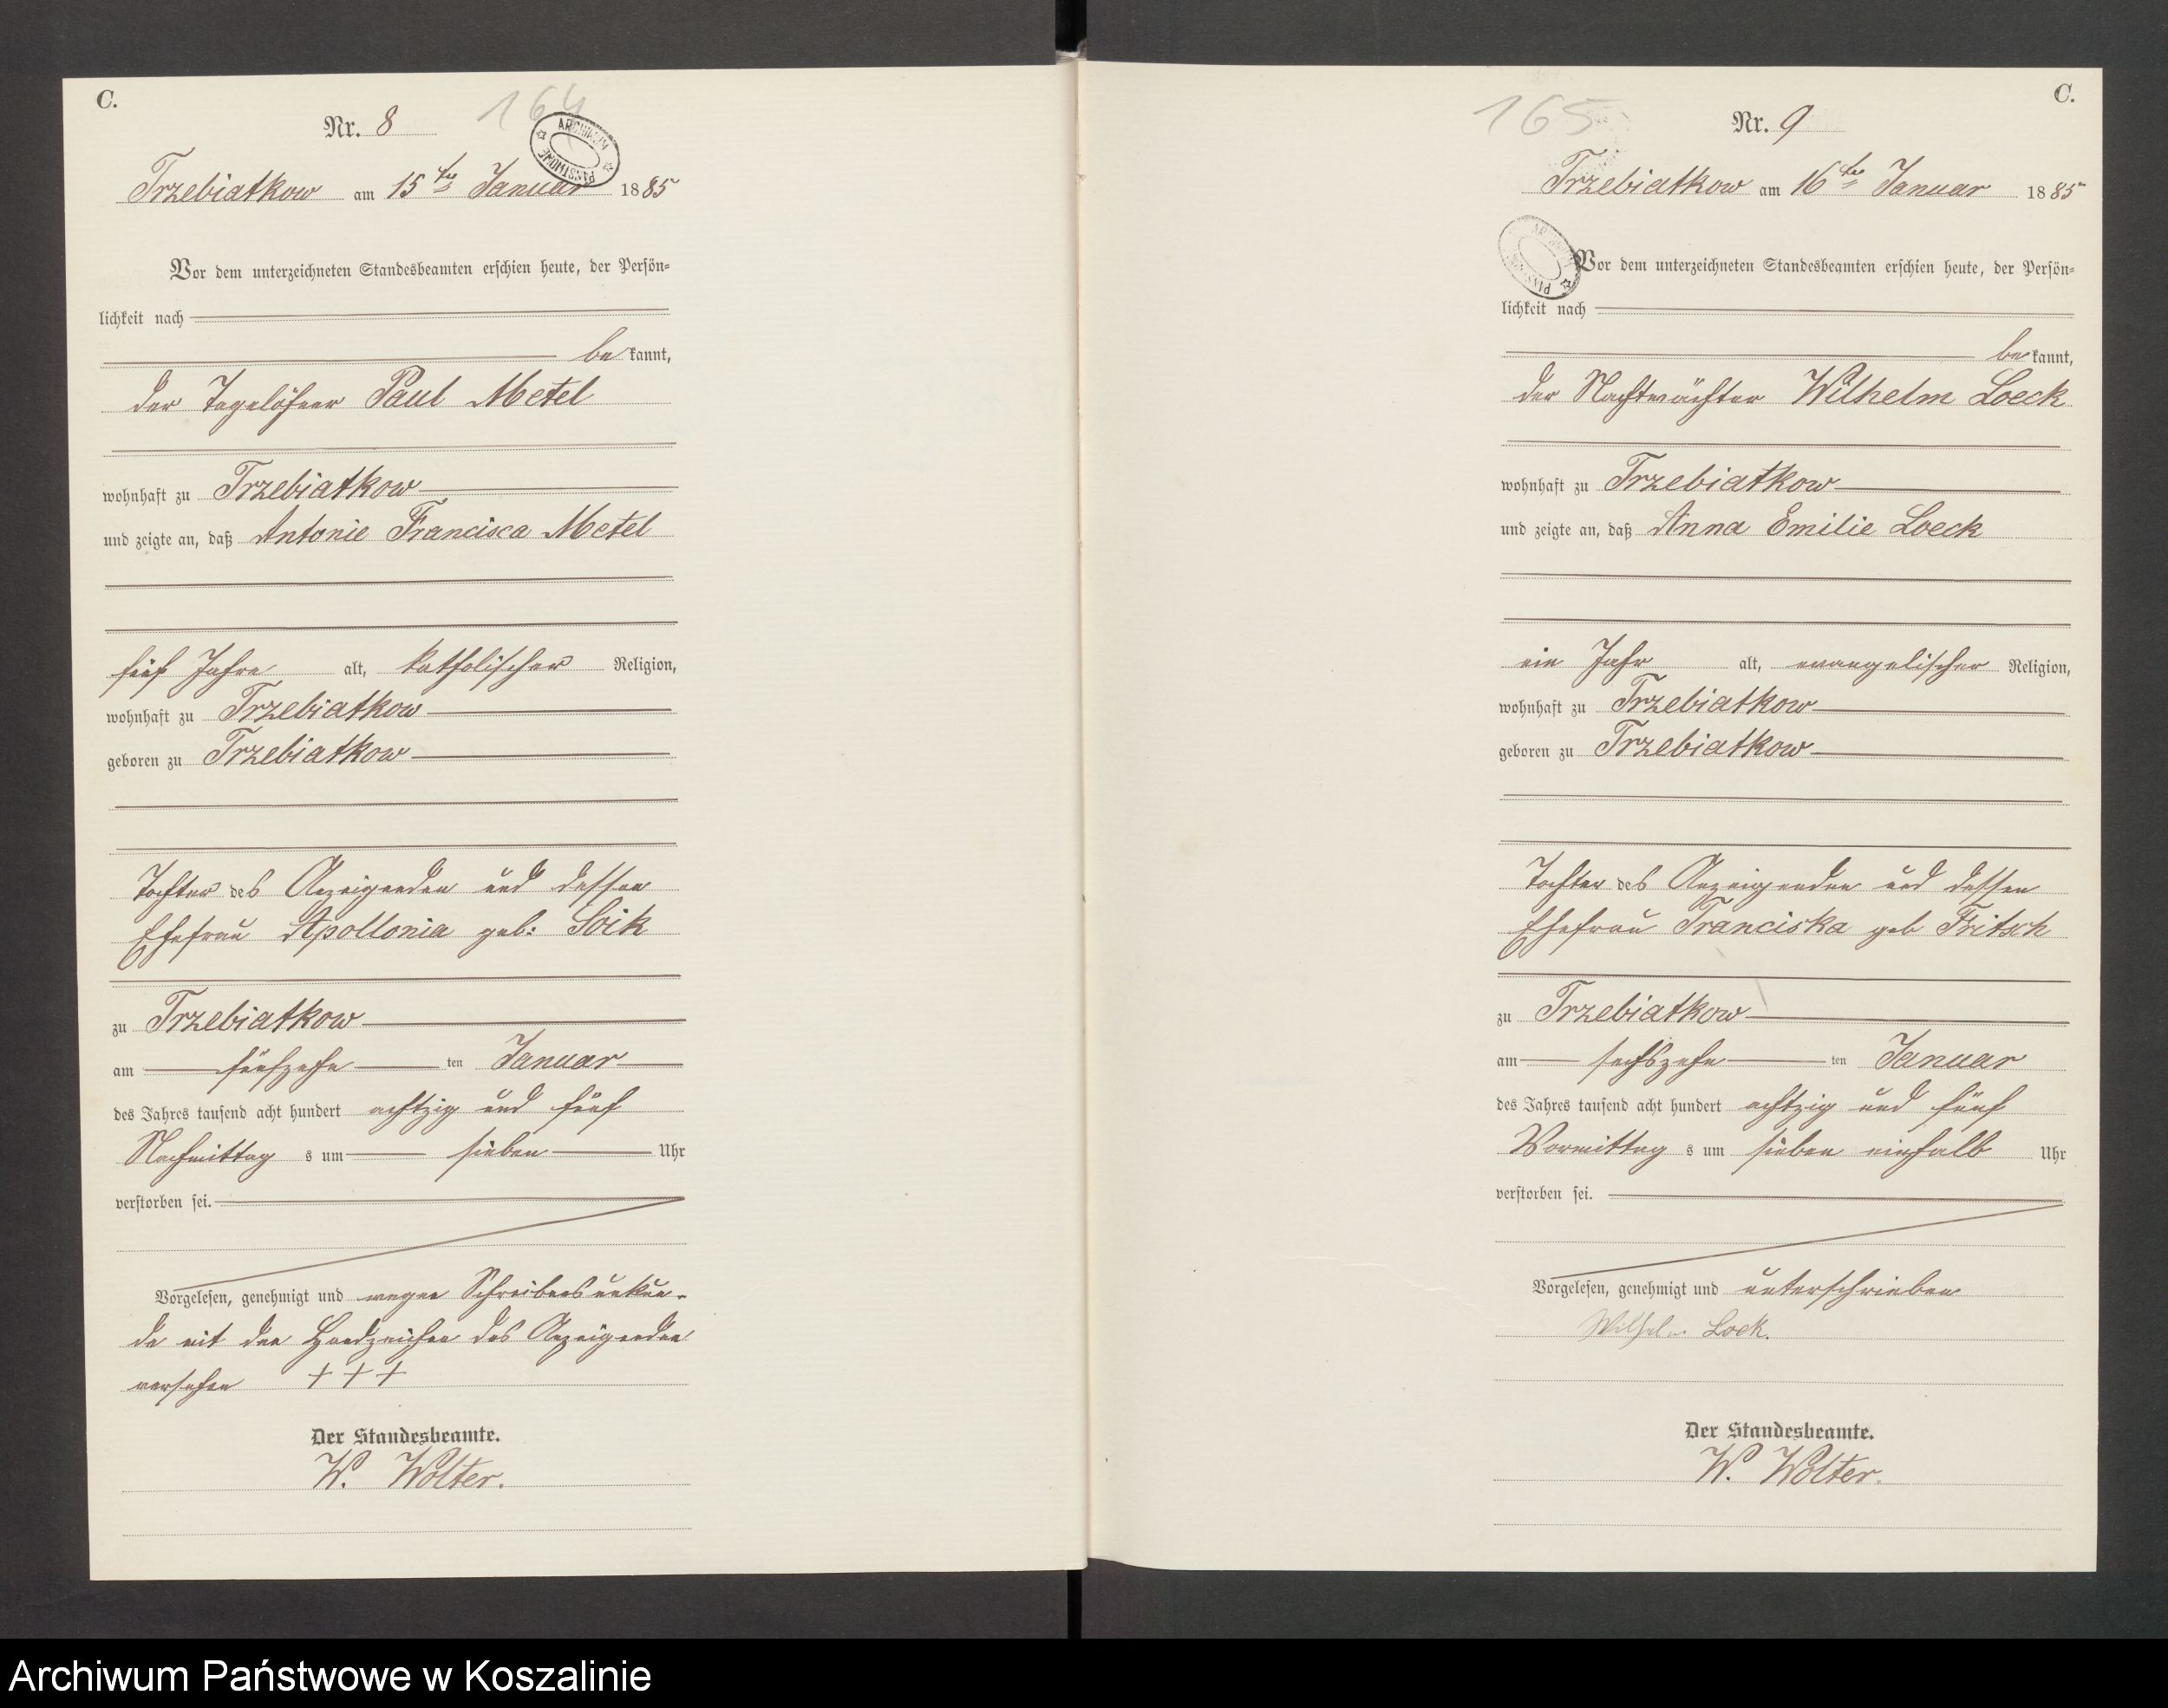 C.
Nr. 8
164
ARCHIWUM PAŃSTWOWE
Trzebiatkow am 15ten Januar 1885
Vor dem unterzeichneten Standesbeamten erschien heute, der Persön=
lichkeit nach
be kannt,
der Tagelöhner Paul Metel
wohnhaft zu Trzebiatkow
und zeigte an, daß Antonie Francisca Metel
fünf Jahre alt, katholischer Religion,
wohnhaft zu Trzebiatkow
geboren zu Trzebiatkow
Tochter des Anzeigenden und dessen
Ehefrau Apollonia geb: Soik
zu Trzebiatkow
am fünfzehn ten Januar
des Jahres tausend acht hundert achtzig und fünf
Nachmittag s um sieben Uhr
verstorben sei.
Vorgelesen, genehmigt und wegen Schreibensunkun-
de mit den Handzeichen des Anzeigenden
versehen + + +
Der Standesbeamte.
W. Wolter.
C.
165
Nr. 9
Trzebiatkow am 16ten Januar 1885
Vor dem unterzeichneten Standesbeamten erschien heute, der Persön=
lichkeit nach
be kannt,
der Nachtwächter Wilhelm Loeck
wohnhaft zu Trzebiatkow
und zeigte an, daß Anna Emilie Loeck
ein Jahr alt, evangelischer Religion,
wohnhaft zu Trzebiatkow
geboren zu Trzebiatkow
Tochter des Anzeigenden und dessen
Ehefrau Franciska geb Fritsch
zu Trzebiatkow
am sechszehn ten Januar
des Jahres tausend acht hundert achtzig und fünf
Vormittag s um sieben einhalb Uhr
verstorben sei.
Vorgelesen, genehmigt und unterschrieben
Wilhelm Loek.
Der Standesbeamte.
W. Wolter.
Archiwum Państwowe w Koszalinie